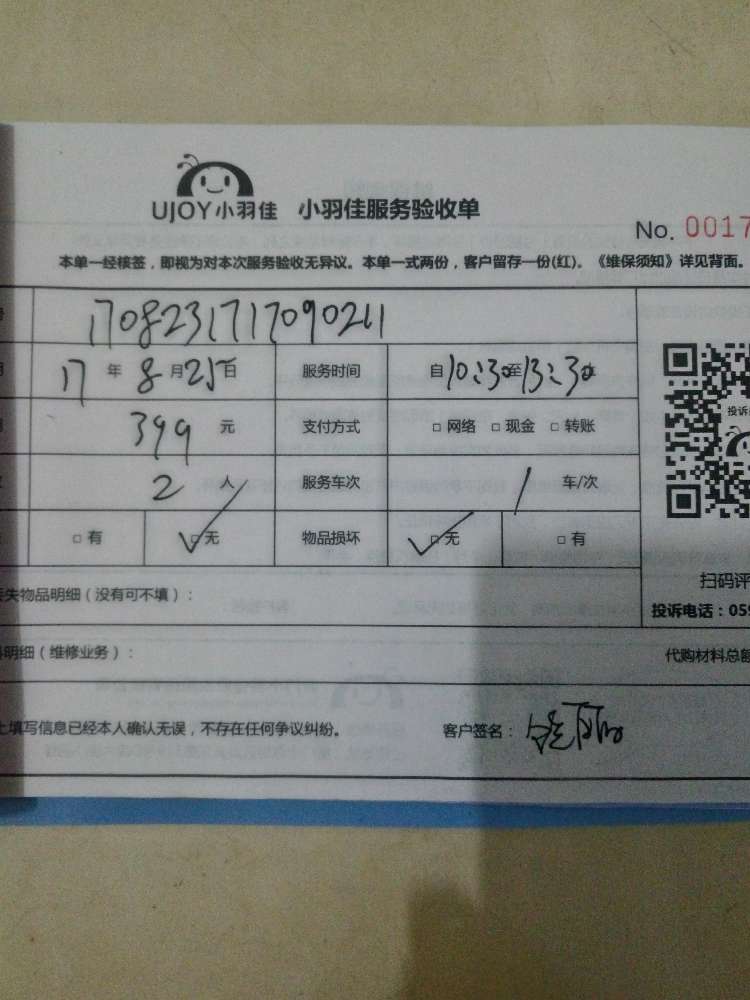 UJOY小羽佳 小羽佳服务验收单
No. 0017
本单一经核签，即视为对本次服务验收无异议。本单一式两份，客户留存一份(红)。《维保须知》详见背面。
1708231717090211
17 年 8 月 25 日 服务时间 自 10:30 至 13:30
399 元 支付方式 □ 网络 □ 现金 □ 转账
2 人 服务车次 1 车/次
□ 有 □ 无 物品损坏 □ 无 □ 有
投诉
扫码评
失物品明细（没有可不填）：
投诉电话：059
明细（维修业务）：
代购材料总额
上填写信息已经本人确认无误，不存在任何争议纠纷。
客户签名：